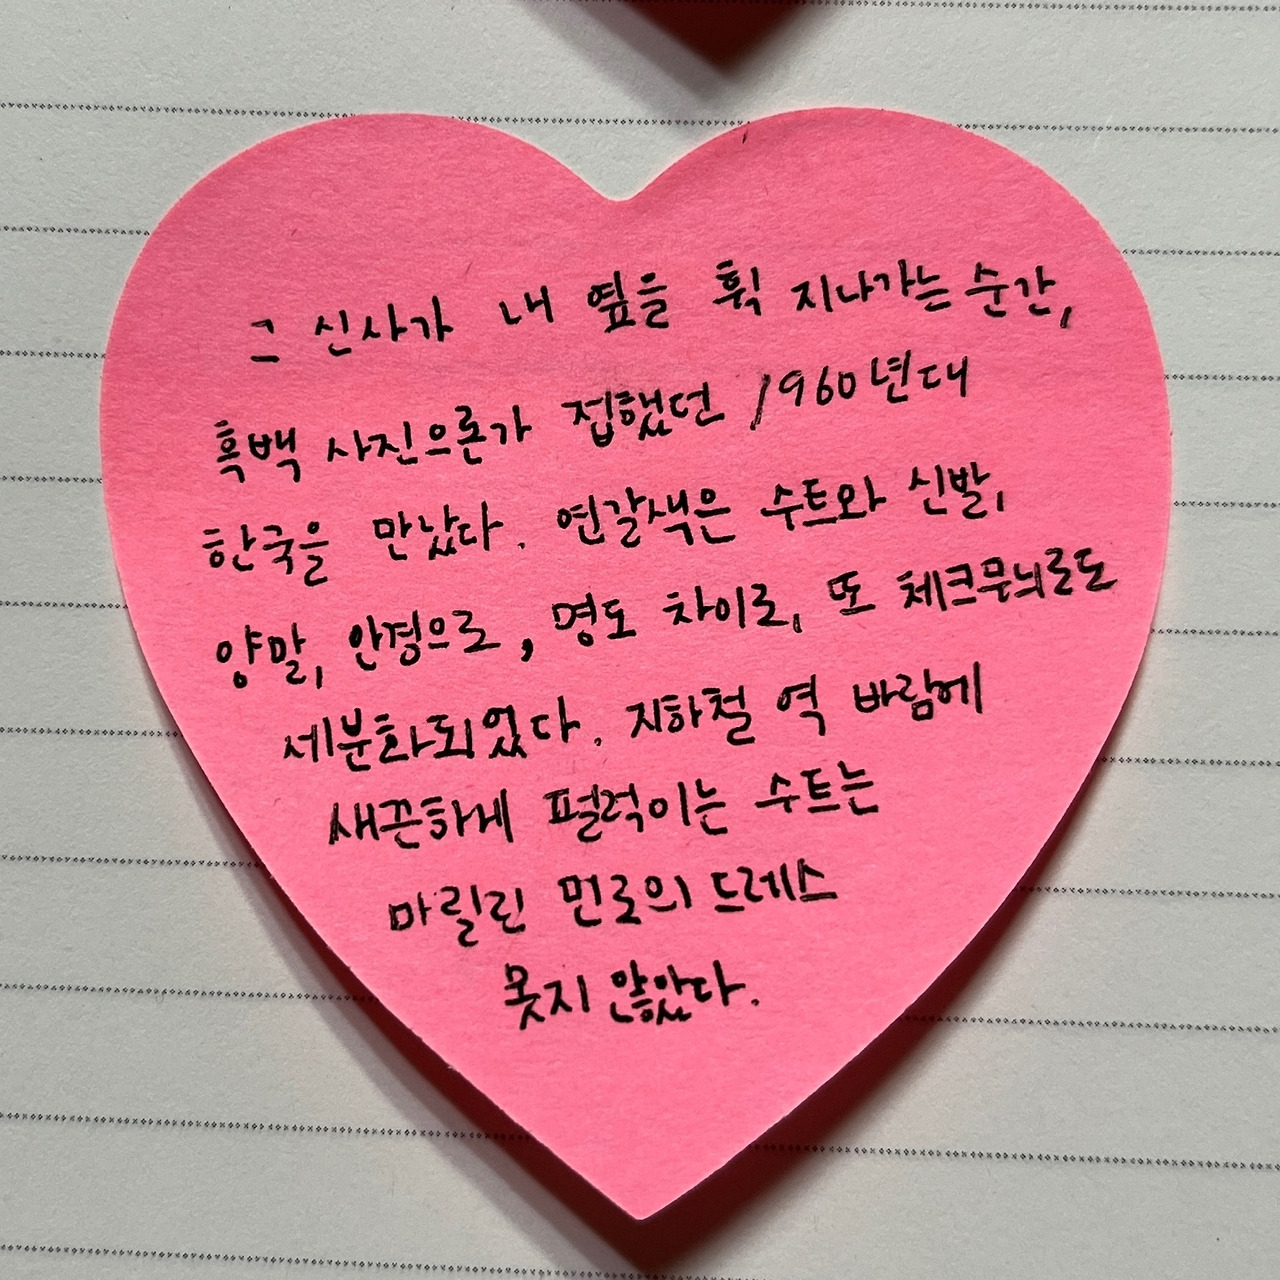 그 신사가 내 옆을 휙 지나가는 순간,
흑백 사진으론가 접했던 1960년대
한국을 만났다. 연갈색은 수트와 신발,
양말, 안경으로, 명도 차이로, 또 체크무늬로도
세분화되었다. 지하철 역 바람에
새끈하게 펄럭이는 수트는
마릴린 먼로의 드레스
못지 않았다.